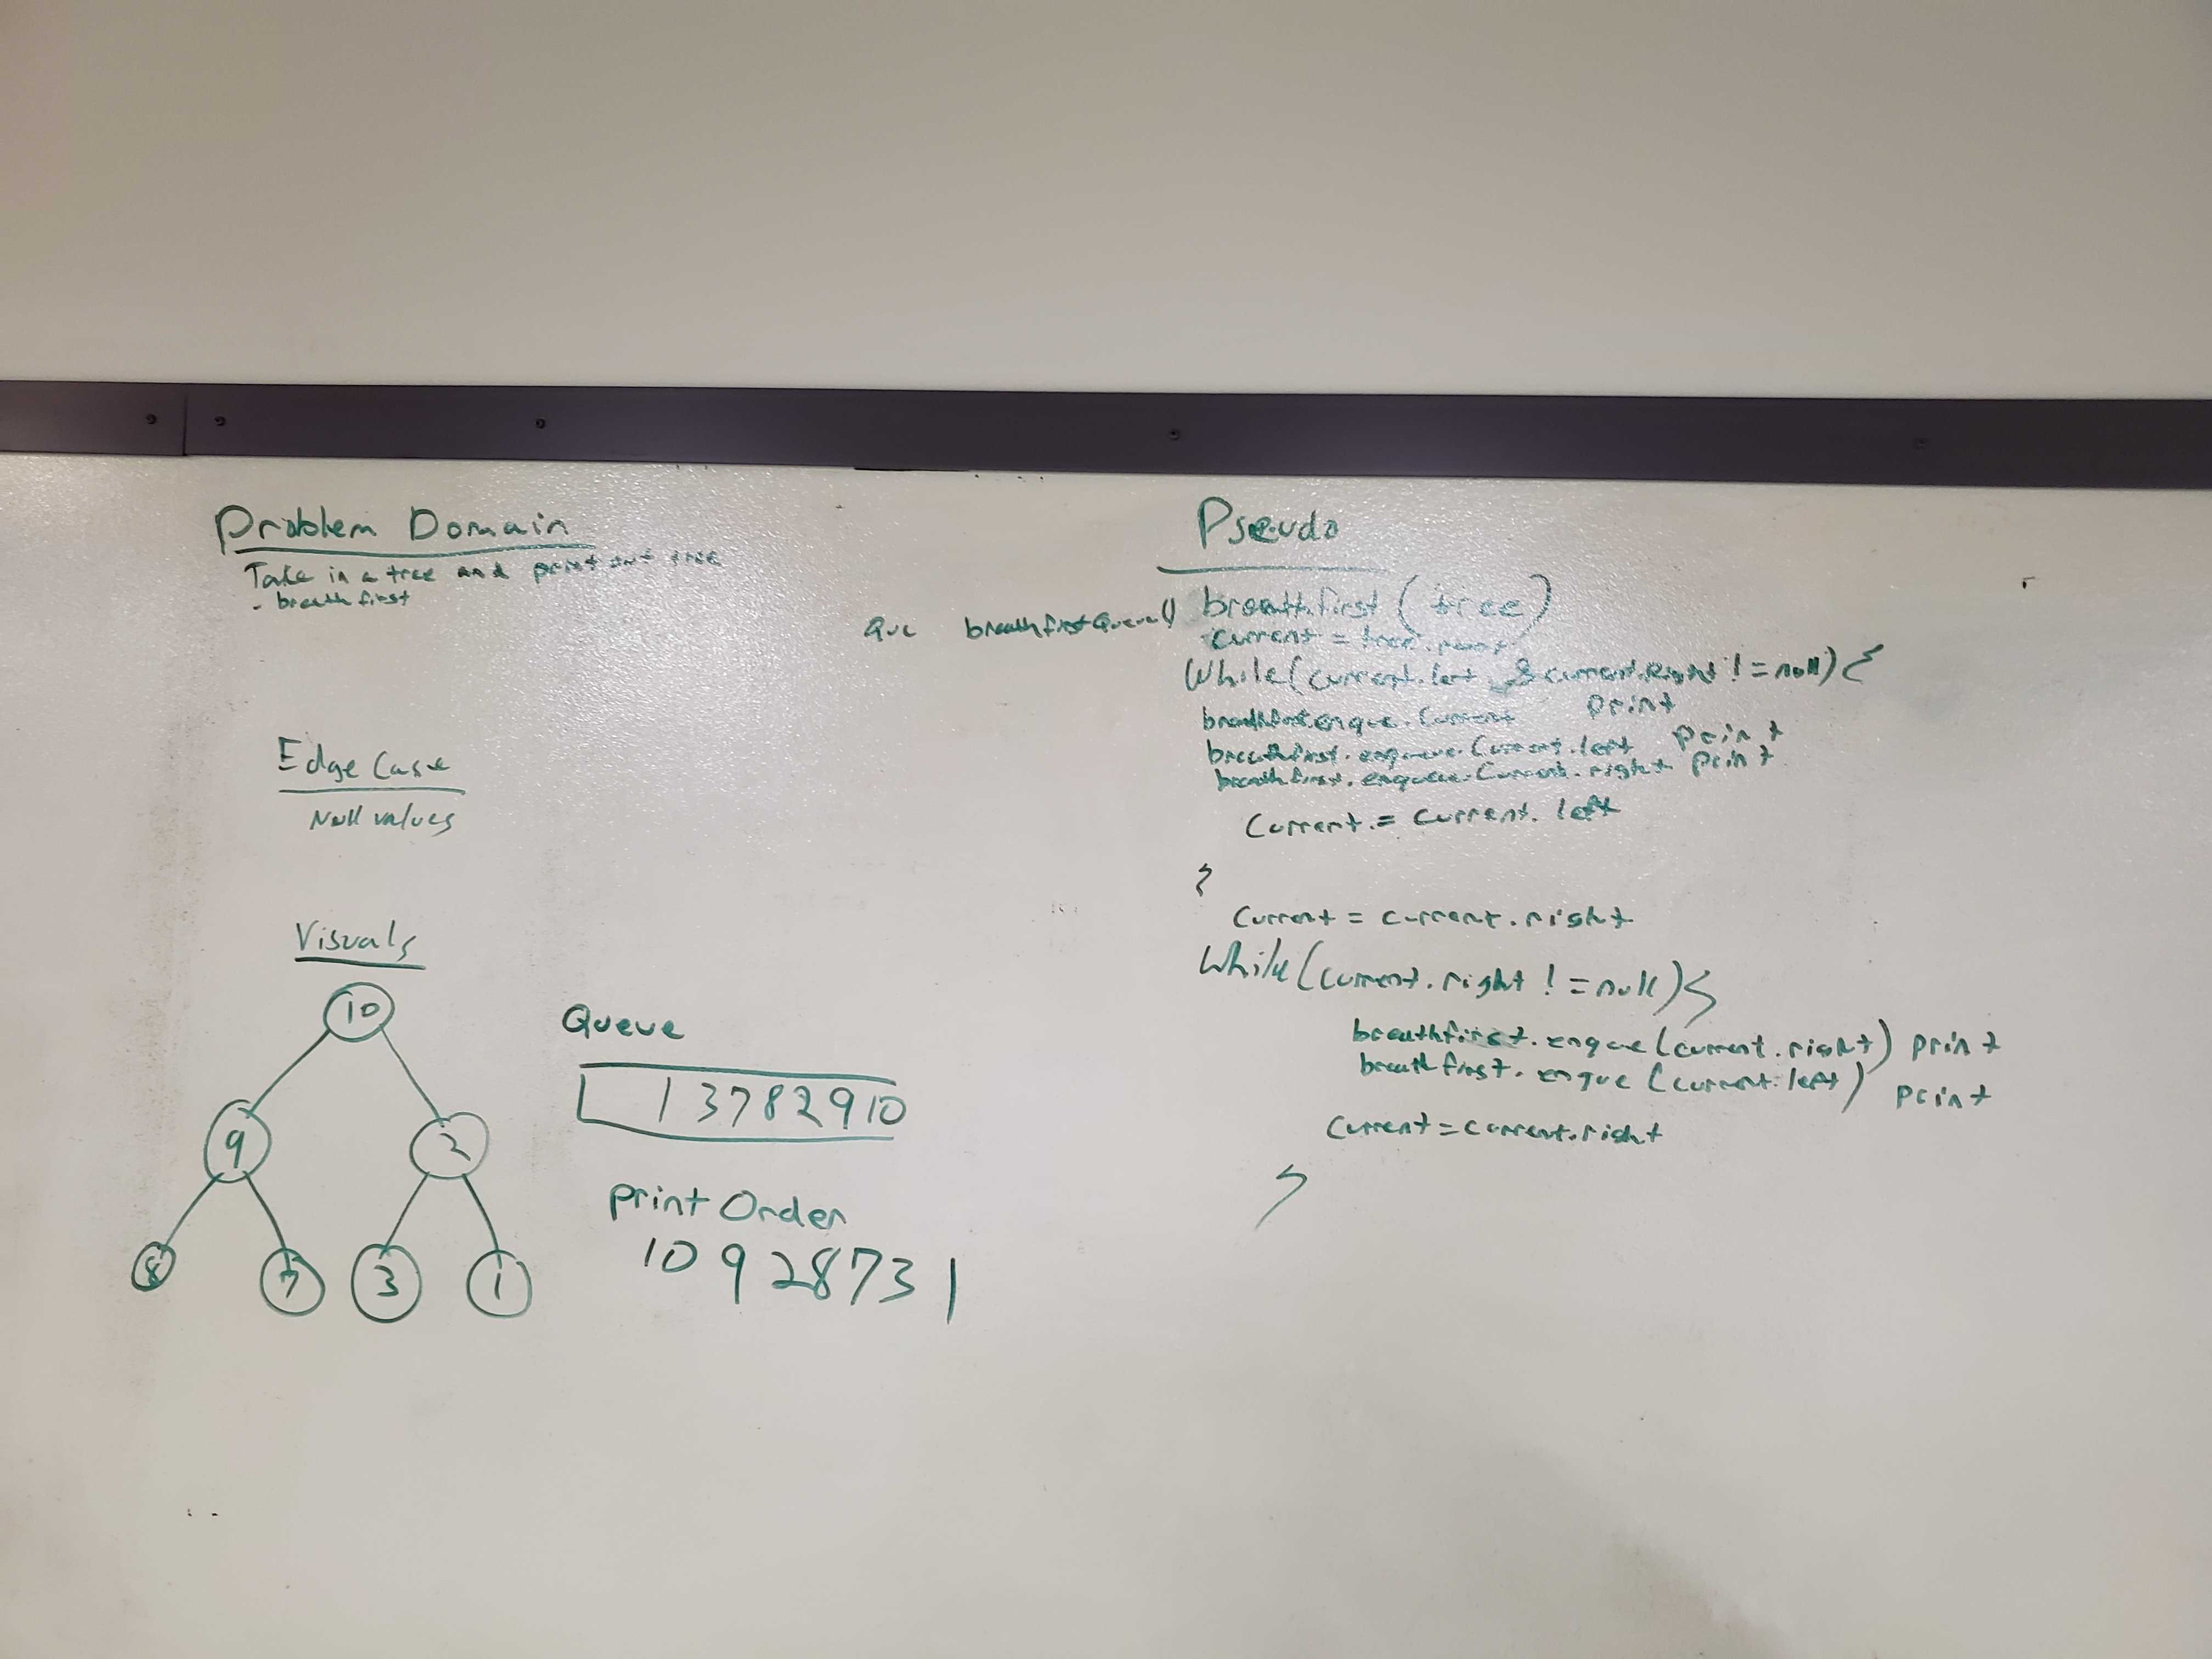 Problem Domain
Take in a tree and print out tree
- breath first
Edge Case
Null values
Visuals
10
9 2
8 7 3 1
Queue
1 3 7 8 2 9 10
print Order
10 9 2 8 7 3 1
Pseudo
Que breathfirstQueue()
breathfirst(tree)
current = tree.root
While(current.left & current.Right != null){
breathfirst.enque.Current print
breathfirst.enqueue.Current.left print
breathfirst.enqueue.Current.right print
Current = current.left
}
Current = current.right
While(current.right != null){
breathfirst.enque(current.right) print
breathfirst.enque(current.left) print
Current = current.right
}